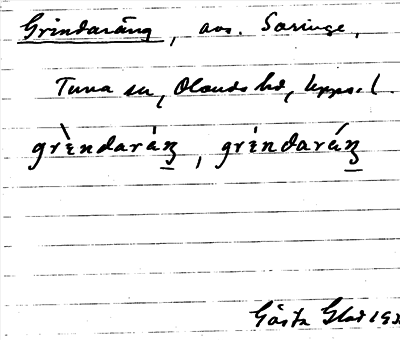 Grindaräng, avs. Saringe,
Tuna sn, Olands hd, Upps. l.
grìndaráŋ, grindaráŋ
Gösta Glad 193